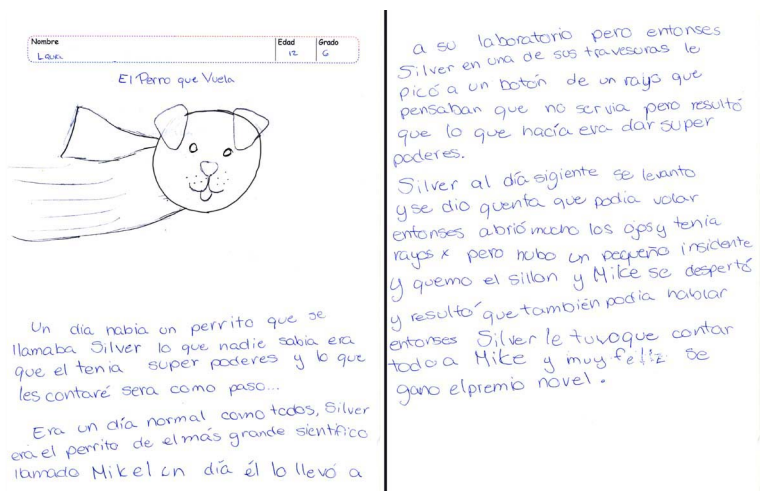 Nombre
Edad
Grado
Laura
12
6
El Perro que Vuela
Un dia habia un perrito que se
llamaba Silver lo que nadie sabia era
que el tenia super poderes y lo que
les contaré sera como paso...
Era un día normal como todos, Silver
era el perrito de el más grande sientifico
llamado Mikel un día él lo llevó a
a su laboratorio pero entonses
Silver en una de sus travesuras le
picó a un botón de un rayo que
pensaban que no servia pero resultó
que lo que hacía era dar super
poderes.
Silver al día sigiente se levanto
y se dio quenta que podia volar
entonses abrió mucho los ojos y tenia
rayos x pero hubo un pequeño insidente
y quemo el sillon y Mike se despertó
y resultó que también podia hablar
entonses Silver le tuvo que contar
todo a Mike y muy feliz se
gano el premio novel.